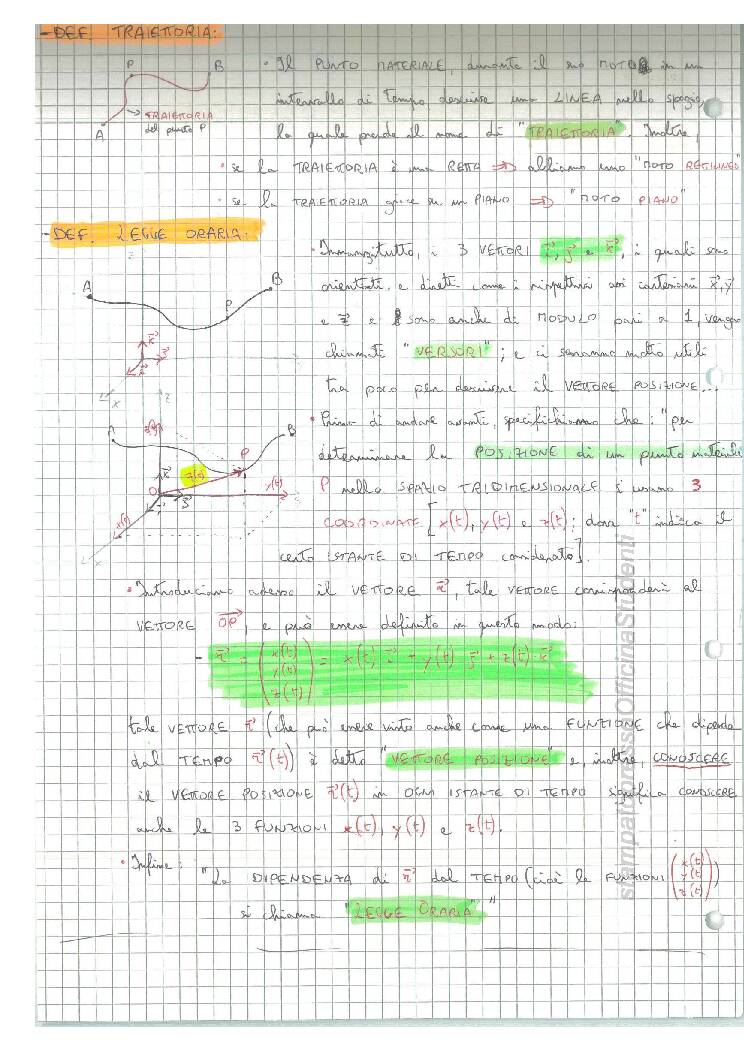 -DEF. TRAIETTORIA:
P
B
A
TRAIETTORIA
del punto P
• Il PUNTO MATERIALE, durante il suo MOTO in un
intervallo di tempo descrive una LINEA nello spazio,
la quale prende il nome di "TRAIETTORIA". Inoltre
• se la TRAIETTORIA è una RETTA ⇒ abbiamo uno "MOTO RETILINEO"
• se la TRAIETTORIA giace su un PIANO ⇒ "MOTO PIANO"
-DEF. LEGGE ORARIA:
z
A
B
P
x
• Innanzitutto, i 3 VETTORI i⃗, j⃗ e k⃗, i quali sono
orientati e diretti come i rispettivi assi cartesiani x⃗, y⃗
e z⃗ e sono anche di MODULO pari a 1, vengono
chiamati "VERSORI"; e ci saranno molto utili
tra poco per descrivere il VETTORE POSIZIONE...
z
z(t)
A
B
P
r⃗(t)
k⃗
O
j⃗
y(t)
x(t)
x
• Prima di andare avanti, specifichiamo che: "per
determinare la POSIZIONE di un punto materiale
P nello SPAZIO TRIDIMENSIONALE si usano 3
COORDINATE [x(t), y(t) e z(t); dove "t" indica il
certo ISTANTE DI TEMPO considerato].
• Introduciamo adesso il VETTORE r⃗, tale VETTORE corrisponderà al
VETTORE OP⃗, e può essere definito in questo modo:
- r⃗ = (x(t) y(t) z(t)) = x(t) i⃗ + y(t) j⃗ + z(t)·k⃗
tale VETTORE r⃗ (che può essere visto anche come una FUNZIONE che dipende
dal TEMPO r⃗(t)) è detto "VETTORE POSIZIONE" e, inoltre, CONOSCERE
il VETTORE POSIZIONE r⃗(t) in OGNI ISTANTE DI TEMPO significa CONOSCERE
anche le 3 FUNZIONI x(t), y(t) e z(t).
• Infine:
"La DIPENDENZA di r⃗ dal TEMPO (cioè le FUNZIONI (x(t) y(t) z(t)))
si chiama "LEGGE ORARIA""
stampatopressoOfficinaStudenti